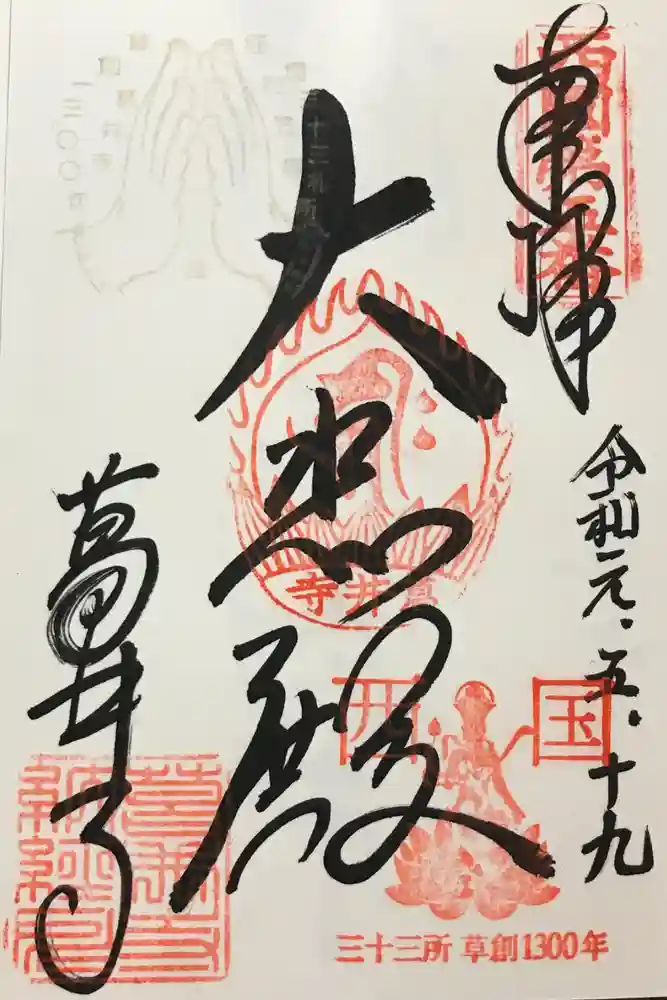 奉拝
令和元.五.十九
大悲殿
葛井寺
葛井寺
西国
三十三所 草創1300年